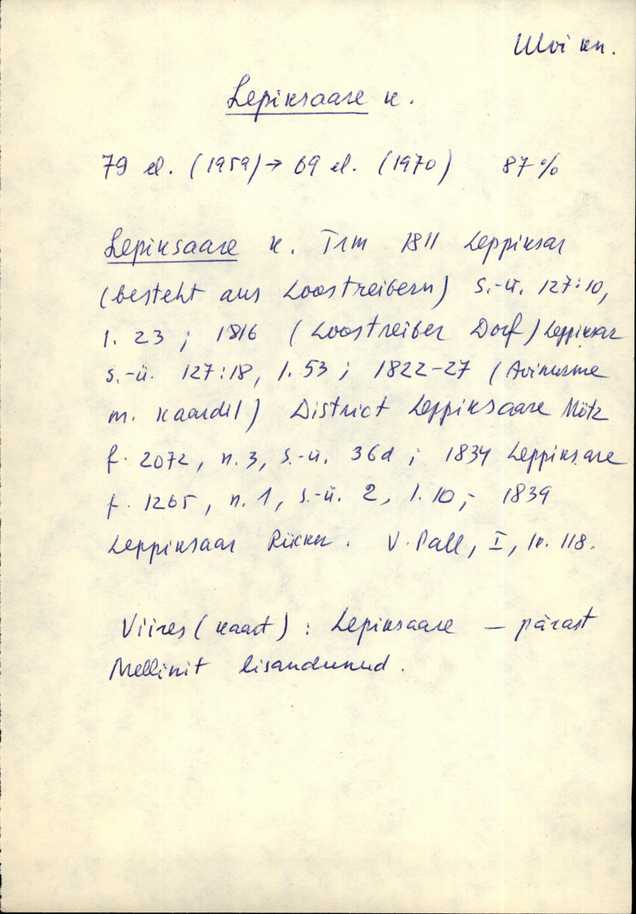 Ulvi kn.
Lepiksaare k.
79 el. (1959) → 69 el. (1970) 87%
Lepiksaare k. Trm 1811 Leppiksar
(besteht aus Loostreibern) s.-ü. 127:10,
l. 23 ; 1816 (Loostreiber Dorf) Leppiksar
s.-ü. 127:18, l. 53 ; 1822-27 (Avinurme
m. kaardil) District Leppiksaare Mötz
f. 2072, n. 3, s.-ü. 36d ; 1834 Leppiksare
f. 1265, n. 1, s.-ü. 2, l. 10 ; 1839
Leppiksaar Rücker. V. Pall, I, lk. 118.
Viires (kaart) : Lepiksaare — pärast
Mellinit lisandunud.